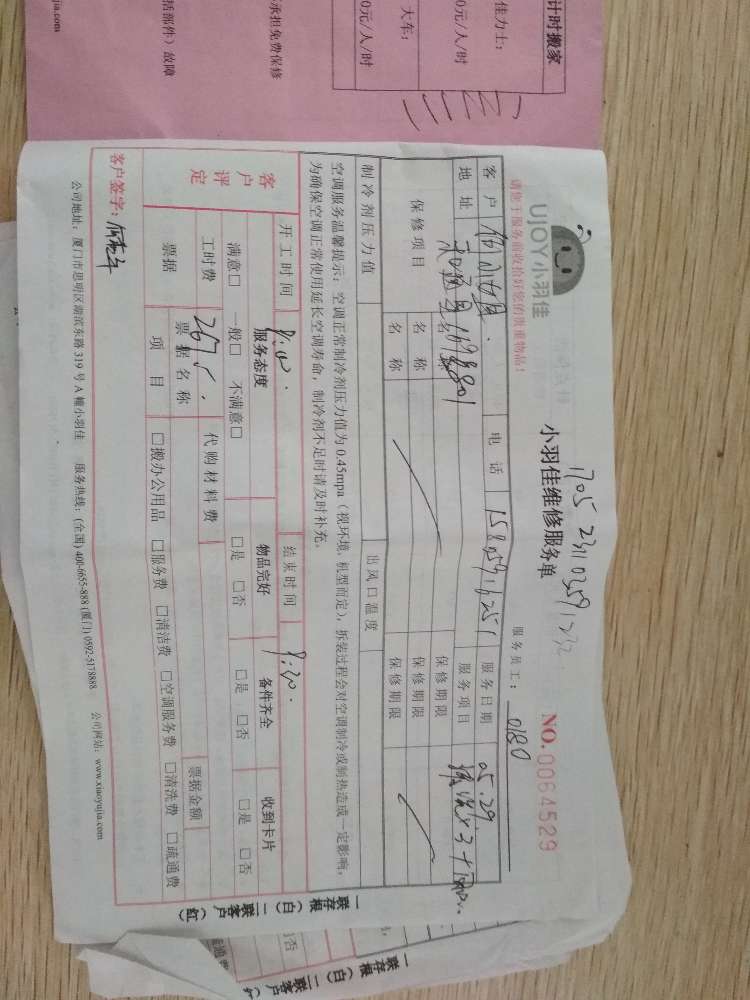 计时搬家
佳力士:
0元/人/时
大车:
0元/人/时
承担免费保修
括部件)故障
jia.com
UJOY小羽佳
请您于服务前收拾好您的贵重物品!
小羽佳维修服务单
NO.0064529
服务员工: 0180
客户
电话
服务日期 05.29
地址
服务项目
保修项目
名称
保修期限
名称
保修期限
名称
保修期限
制冷剂压力值
出风口温度
空调服务温馨提示:空调正常制冷剂压力值为0.45mpa(视环境,机型而定),拆装过程会对空调制冷或制热造成一定影响,
为确保空调正常使用延长空调寿命,制冷剂不足时请及时补充。
开工时间
结束时间
客户评定
服务态度
物品完好
备件齐全
收到卡片
满意□ 一般□ 不满意□
□是 □否
□是 □否
□是 □否
工时费 267元.
代购材料费
票据
票据名称
票据金额
项目
□搬办公用品 □服务费 □清洁费 □空调服务费 □清洗费 □疏通费
客户签字:
公司地址:厦门市思明区湖滨东路319号A幢小羽佳 服务热线:(全国)400-6655-888 (厦门)0592-5178888 公司网站:www.xiaoyujia.com
一联存根(白)二联客户(红)
一联存根(白)二联客户(红